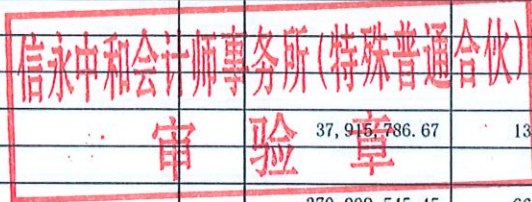 信永中和会计师事务所(特殊普通合伙)
审验章
37,915,786.67 13